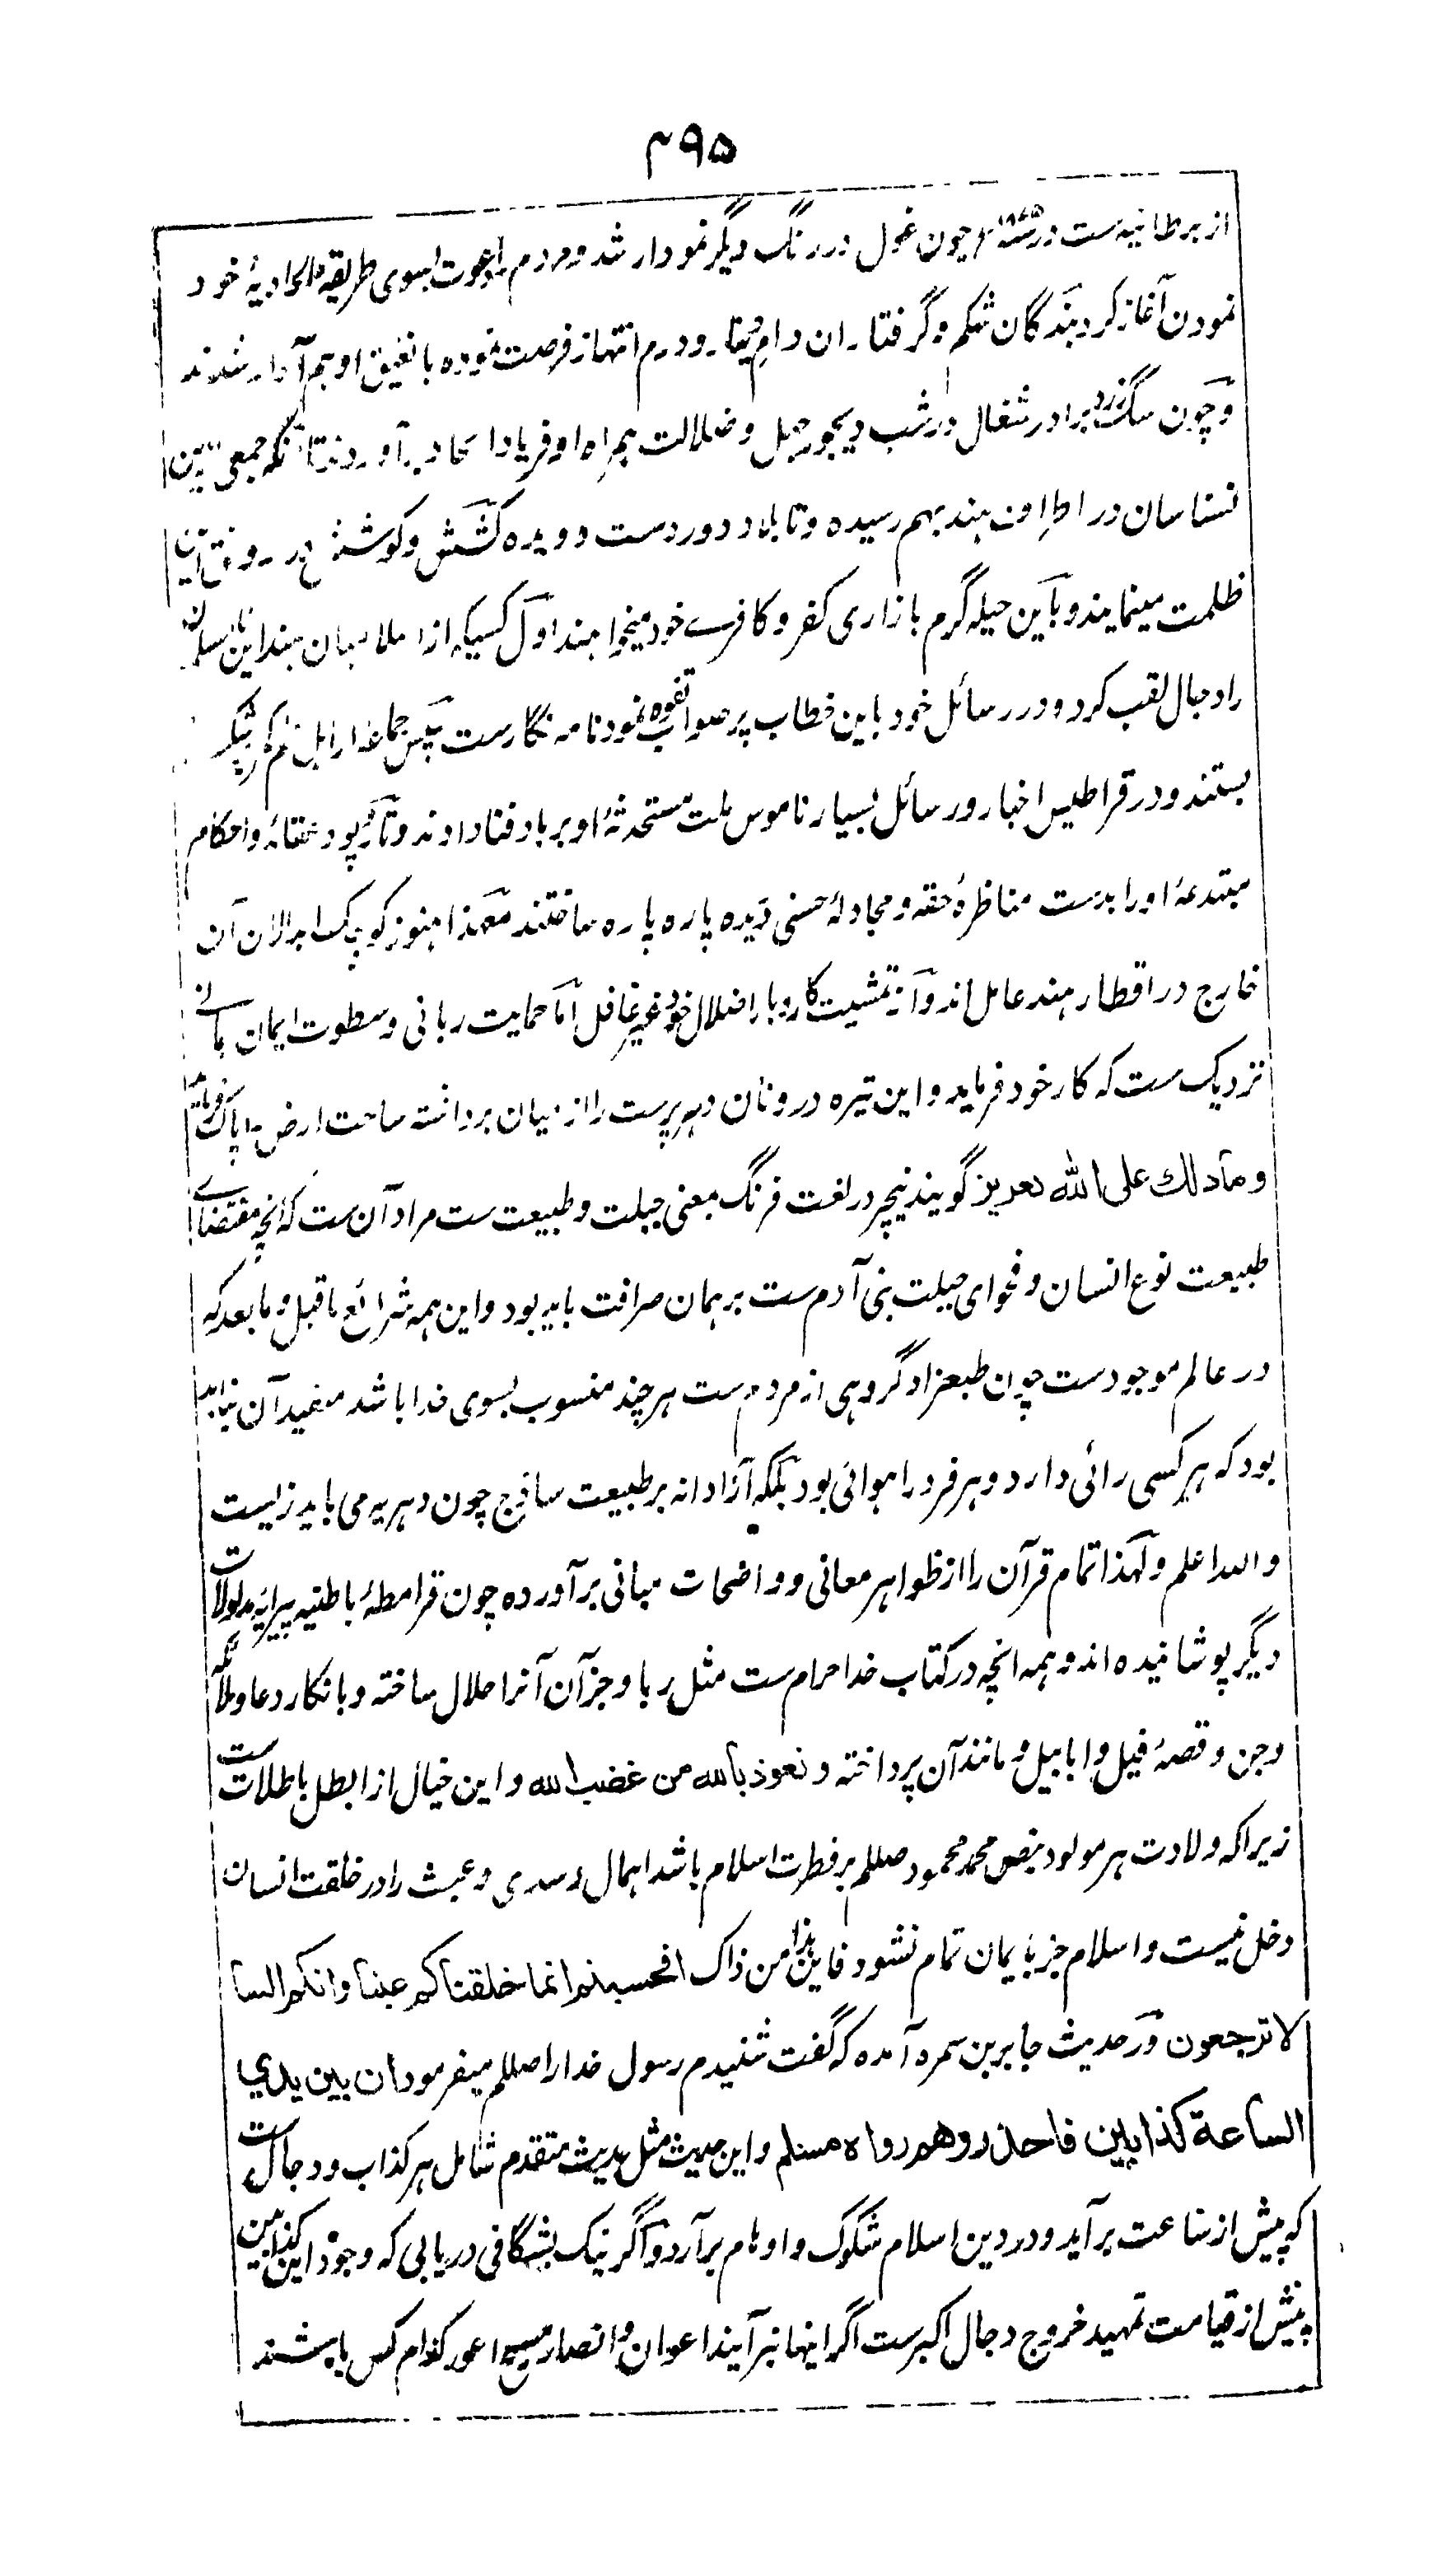 ۴۹۵
از برطانیه ست در ۱۸۷۵ء چون غول در رنگ دیگر نمودار شد و مردم را دعوت بسوی طریقهٔ الحادیهٔ خود
نمودن آغاز کرد بندگان شکم و گرفتاران دام دینار و درم انتهاز فرصت نموده با نغیق او هم آواز شدند
و چون سگ زرد برادر شغال در شب دیجور جهل و ضلالت همراه او فریاد الحاد برآوردند تا آنکه جمعی ازین
نسناسان در اطراف هند بهم رسیده و تا بلاد دوردست دویده کشش و کوشش در رونق این
ظلمت مینمایند و باین حیله گرم بازاری کفر و کافری خود میخواهند اول کسیکه از اسلامیان هند این نامسلمان
را دجال لقب کرد و در رسائل خود باین خطاب پر صواب تفوه نمود نامه نگارست پس جماعهٔ از اهل علم کمر بر
بستند و در قراطیس اخبار و رسائل بسیار ناموس ملت مستحدثهٔ او بر باد فنا دادند و تار و پود عقائد و احکام
مبتدعهٔ او را بدست مناظرهٔ حقه و مجادلهٔ حسنی دریده پاره پاره ساختند معهذا هنوز کوچک ابدالان آن
خارج در اقطار هند عامل اند و از تمشیت کاروبار اضلال خود غیر غافل اما حمایت ربانی و سطوت ایمان یمانی
نزدیک ست که کار خود فرماید و این تیره درونان دهر پرست را از میان برداشته ساحت ارض را پاک فرماید
وما ذلك على الله بعزيز گویند نیچر در لغت فرنگ بمعنی جبلت و طبیعت ست مراد آن ست که آنچه مقتضای
طبیعت نوع انسان و فحوای جبلت بنی آدم ست بر همان صرافت باید بود و این همه شرائع ماقبل و مابعد که
در عالم موجودست چون طبعزاد گروهی از مردم ست هر چند منسوب بسوی خدا باشد مقید آن نباید
بود که هر کسی رائی دارد و هر فرد را هوائی بود بلکه آزادانه بر طبیعت ساذج چون دهریه می باید زیست
والله اعلم و لهذا تمام قرآن را از ظواهر معانی و واضحات مبانی برآورده چون قرامطهٔ باطنیه پیرایهٔ مدلولات
دیگر پوشانیده اند و همه آنچه در کتاب خدا حرام ست مثل ربا و جز آن آنرا حلال ساخته و بانکار دعا و ملائکه
و جن و قصهٔ فیل و ابابیل و مانند آن پرداخته و نعوذ بالله من غضب الله و این خیال از ابطل باطلات ست
زیرا که ولادت هر مولود بنص محمد محمود صللم بر فطرت اسلام باشد اهمال و سدی و عبث را در خلقت انسان
دخل نیست و اسلام جز بایمان تمام نشود فاین هذا من ذاک افحسبتم انما خلقناكم عبثا وانكم الينا
لا ترجعون و در حدیث جابر بن سمره آمده که گفت شنیدم رسول خدا را صللم میفرمود ان بين يدي
الساعة كذابين فاحذروهم رواه مسلم و این حدیث مثل حدیث متقدم شامل هر کذاب و دجال ست
که پیش از ساعت برآید و در دین اسلام شکوک و اوهام برآرد و اگر نیک بشگافی دریابی که وجود این کذابین
پیش از قیامت تمهید خروج دجال اکبرست اگر اینها نبرآیند اعوان و انصار مسیح اعور کدام کس باشند